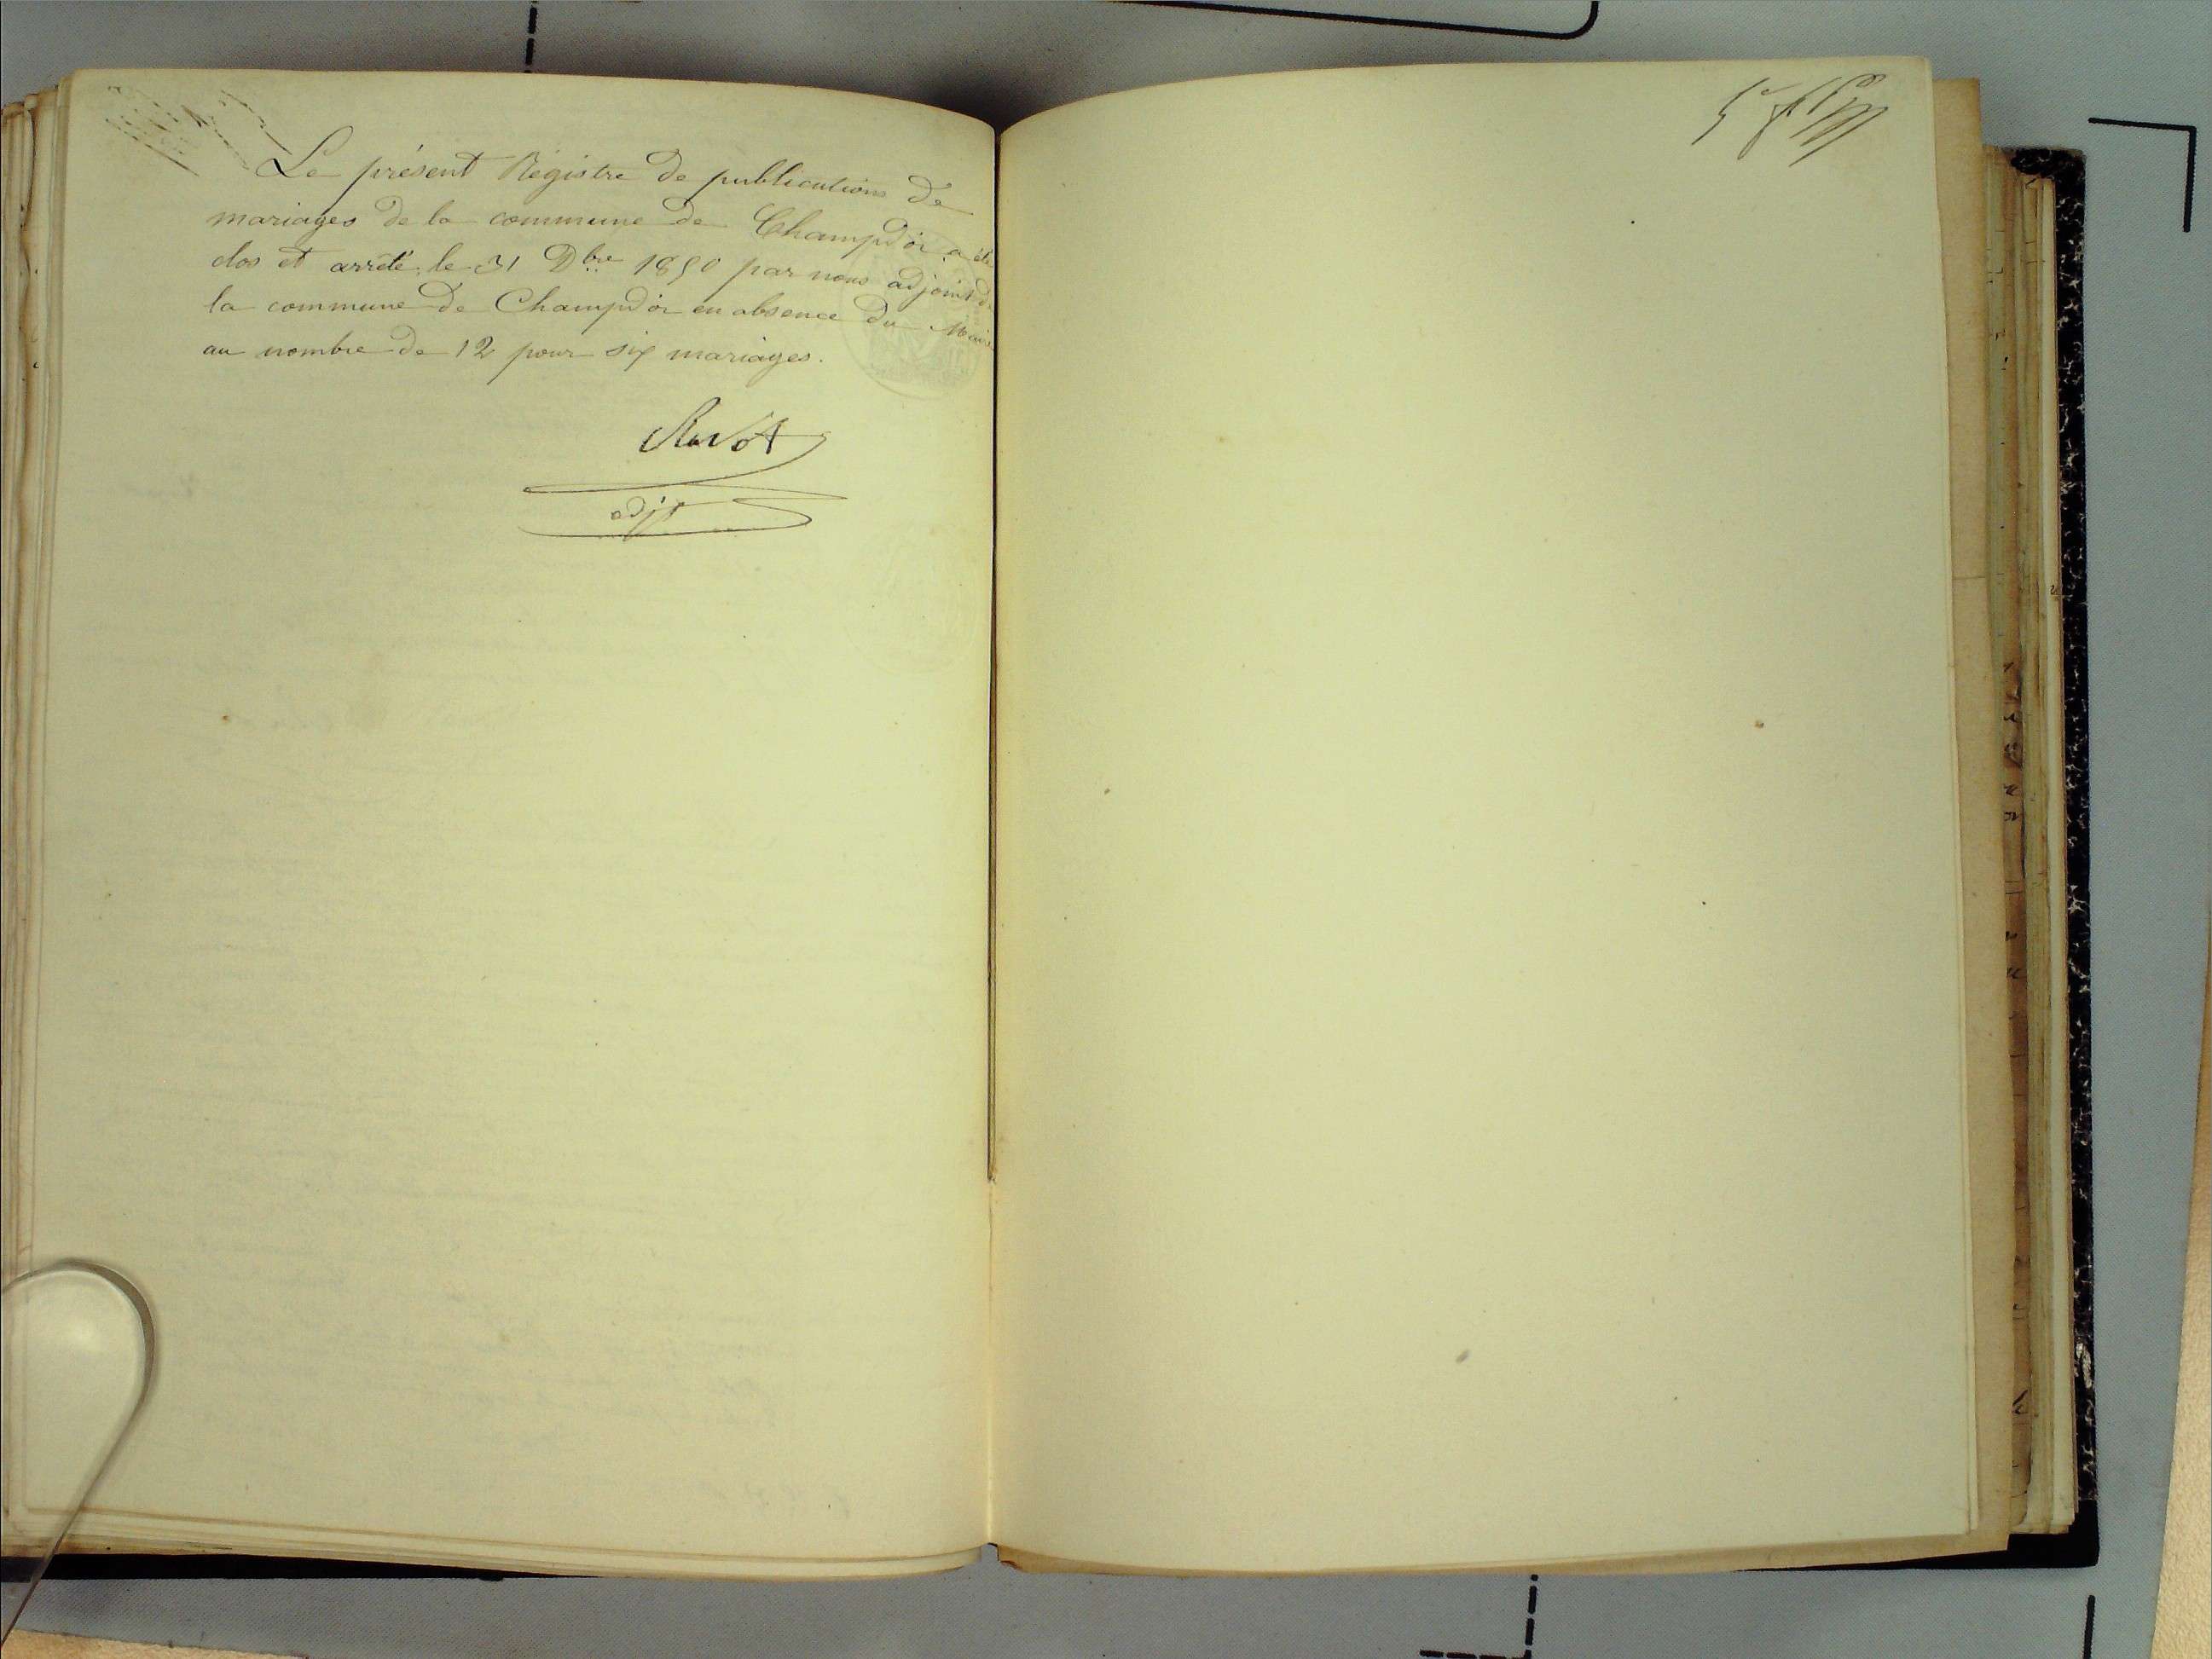 Le présent Régistre de publications de
mariages de la commune de Champdor a été
clos et arrêté le 31 Dbre 1850 par nous adjoint de
la commune de Champdor en absence du Maire
au nombre de 12 pour six mariages.
Ravot
adjt
5e ft